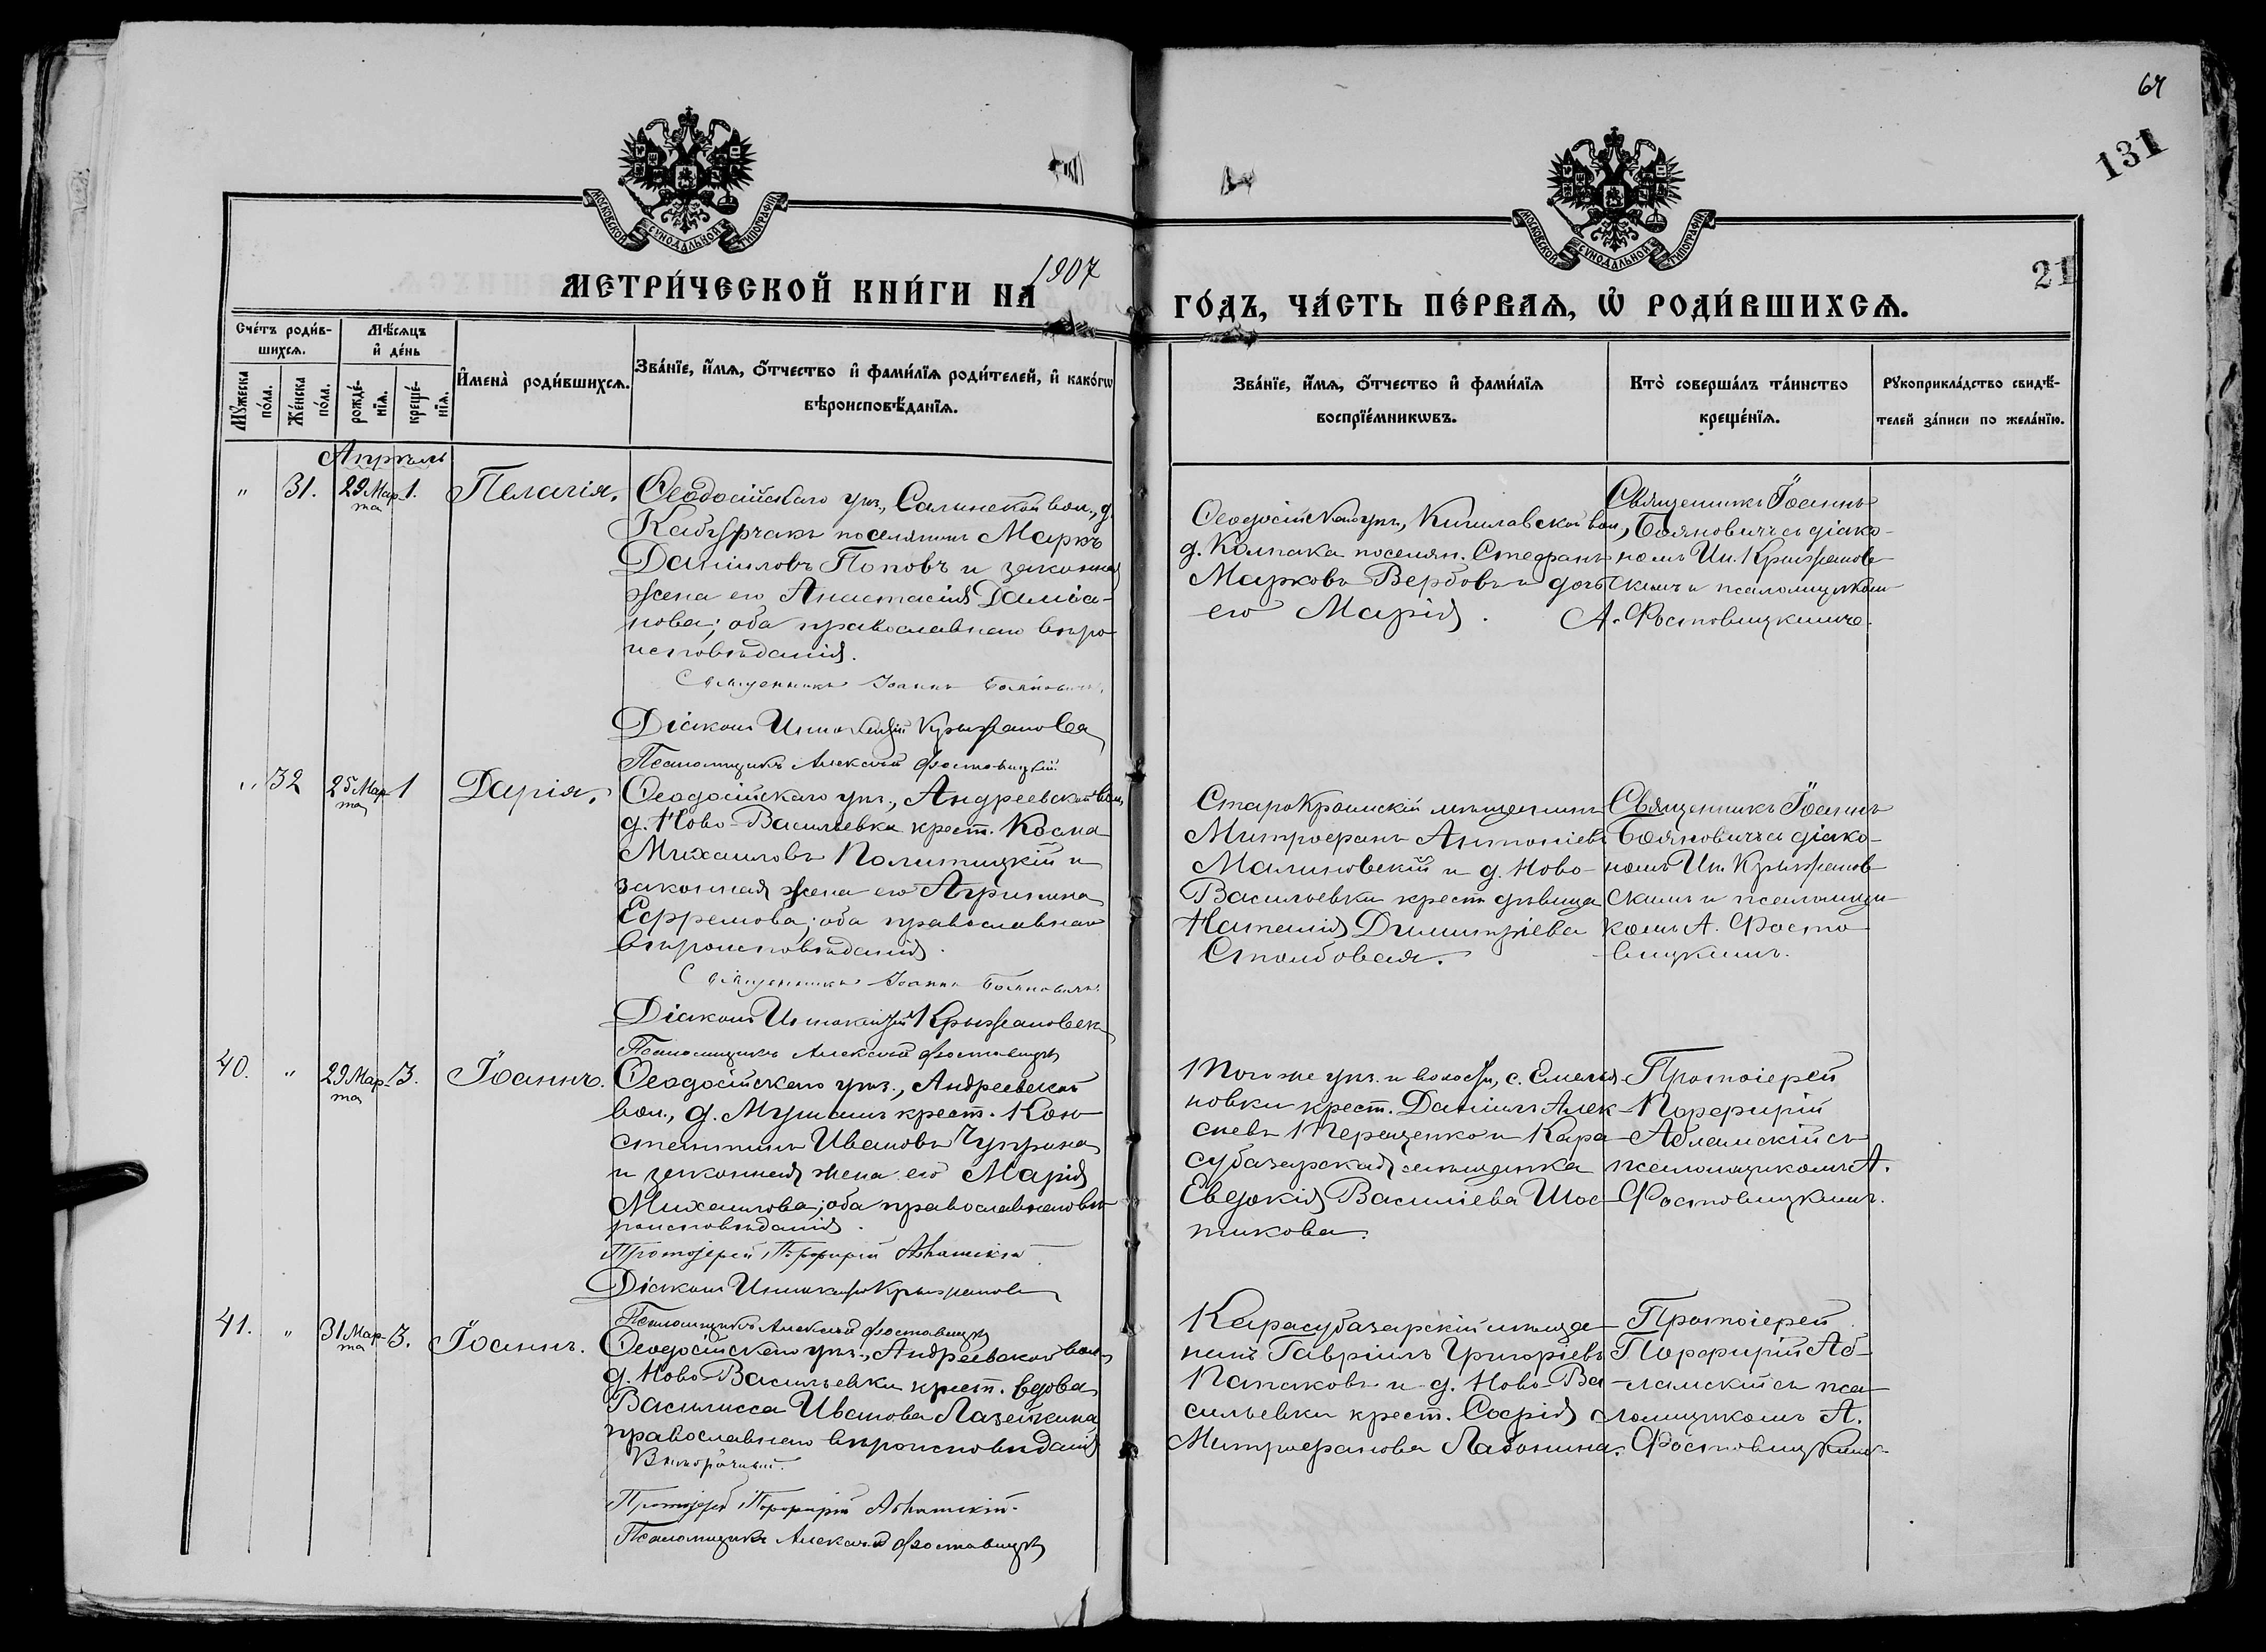 64
131
21
МОСКОВСКОЙ СѴНОДАЛЬНОЙ ТИПОГРАФІИ
МОСКОВСКОЙ СѴНОДАЛЬНОЙ ТИПОГРАФІИ
МЕТРИ́ЧЕСКОЙ КНИ́ГИ НА 1907
ГО́ДЪ, ЧА́СТЬ ПЕ́РВАѦ, Ѡ҆ РОДИ́ВШИХСѦ.
Сче́тъ роди́в-
шихсѧ.
Мѣ́сѧцъ
и҆ де́нь
Мꙋ́жеска
по́ла.
Же́нска
по́ла.
рожде́-
нїѧ.
креще́-
нїѧ.
И҆мена̀ роди́вшихсѧ.
Зва́нїе, и҆́мѧ, ѻ҆́тчество и҆ фами́лїѧ роди́телей, и҆ како́гѡ
вѣроисповѣ́данїѧ.
Зва́нїе, и҆́мѧ, ѻ҆́тчество и҆ фами́лїѧ
воспрїе́мникѡвъ.
Кто̀ соверша́лъ та́инство
креще́нїѧ.
Рꙋкоприкла́дство свидѣ́-
телей за́писи по жела́нїю.
Апрѣль
" 31. 29 Мар-
та 1. Пелагія.
Ѳеодосійскаго уѣз., Салынской вол., д.
Кабурчакъ поселянинъ Маркъ
Даніиловъ Поповъ и законная
жена его Анастасія Даміа-
нова; оба православнаго вѣро
исповѣданія.
Священникъ Іоаннъ Бояновичъ.
Діаконъ Иннокентій Крыжановск
Псаломщикъ Алексѣй Фостовицкій
Ѳеодосійскаго уѣз., Кишлавской вол.,
д. Колпака поселян. Стефанъ
Марковъ Вербовъ и дочь
его Марія.
Священникъ Іоаннъ
Бояновичъ съ діако-
номъ Ин. Крыжанов-
скимъ и псаломщиком
А. Фостовицкимъ.
" 32 25 Мар-
та 1 Дарія.
Ѳеодосійскаго уѣз., Андреевской вол.,
д. Ново-Васильевки крест. Косма
Михаиловъ Политицкій и
законная жена его Агрипина
Ефремова; оба православнаго
вѣроисповѣданія.
Священникъ Іоаннъ Бояновичъ.
Діаконъ Иннокентій Крыжановск
Псаломщикъ Алексѣй Фостовицкій
Старокрымскій мѣщанинъ
Митрофанъ Антоніевъ
Малиновскій и д. Ново-
Васильевки крест. дѣвица
Наталія Димитріева
Столбовая.
Священникъ Іоаннъ
Бояновичъ съ діако-
номъ Ин. Крыжанов-
скимъ и псаломщи-
комъ А. Фосто-
вицкимъ.
40. " 29 Мар-
та 3. Іоаннъ.
Ѳеодосійскаго уѣз., Андреевской
вол., д. Мушашъ крест. Кон-
стантинъ Ивановъ Чуприна
и законная жена его Марія
Михаилова; оба православнаго вѣ-
роисповѣданія.
Протоіерей Порфирій Абламскій
Діаконъ Иннокентій Крыжановск
Псаломщикъ Алексѣй Фостовицкій
Того же уѣз. и волости, с. Емелья
новки крест. Даніилъ Алек-
сѣевъ Терещенко и Кара-
субазарская мѣщанка
Евдокія Василіева Шос-
тикова.
Протоіерей
Порфирій
Абламскій съ
псаломщикомъ А.
Фостовицкимъ.
41. " 31 Мар-
та 3. Іоаннъ.
Ѳеодосійскаго уѣз., Андреевской вол.,
д. Ново-Васильевки крест. вдова
Василисса Иванова Лазейкина
православнаго вѣроисповѣданія
Внѣбрачный.
Протоіерей Порфирій Абламскій.
Псаломщикъ Алексѣй Фостовицкій
Карасубазарскій мѣща-
нинъ Гавріилъ Григоріевъ
Папаковъ и д. Ново-Ва-
сильевки крест. Софія
Митрофанова Лабонина.
Протоіерей
Порфирій Аб-
ламскій съ пса-
ломщикомъ А.
Фостовицкимъ.